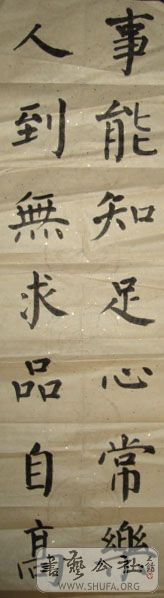 事能知足心常樂
人到無求品自高
書藝公社
WWW.SHUFA.ORG